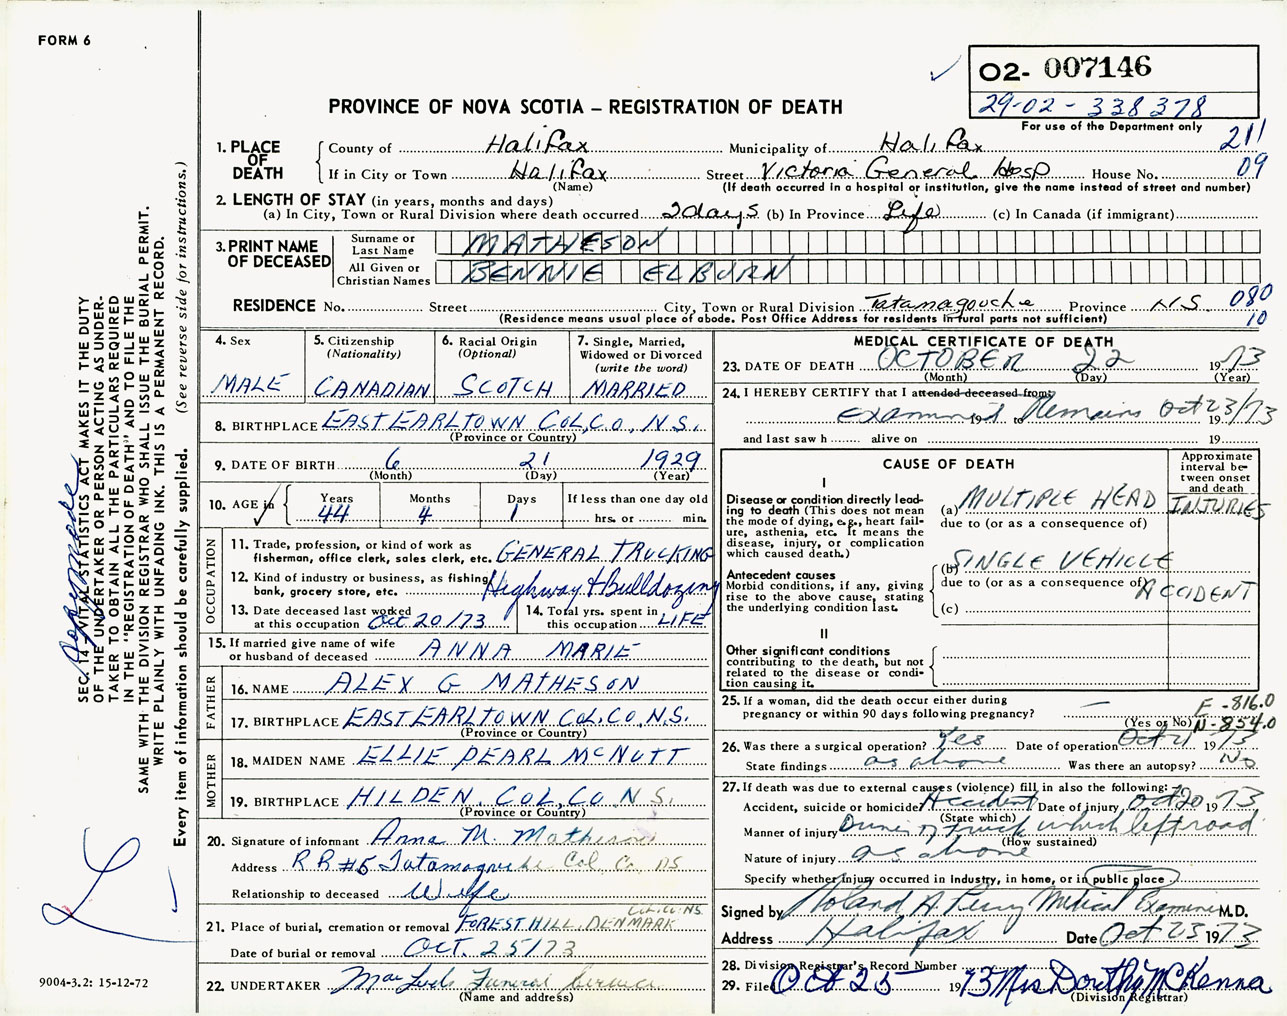 FORM 6
O2- 007146
29-02-338378
For use of the Department only
PROVINCE OF NOVA SCOTIA – REGISTRATION OF DEATH
211
09
1. PLACE OF DEATH
County of Halifax Municipality of Halifax
If in City or Town Halifax Street Victoria General Hosp House No.
(Name) (If death occurred in a hospital or institution, give the name instead of street and number)
2. LENGTH OF STAY (in years, months and days)
(a) In City, Town or Rural Division where death occurred 2 days (b) In Province Life (c) In Canada (if immigrant)
3. PRINT NAME OF DECEASED
Surname or Last Name MATHESON
All Given or Christian Names BENNIE ELBURN
RESIDENCE No. Street City, Town or Rural Division Tatamagouche Province N.S. 080
(Residence means usual place of abode. Post Office Address for residents in rural parts not sufficient) 10
4. Sex
MALE
5. Citizenship (Nationality)
CANADIAN
6. Racial Origin (Optional)
SCOTCH
7. Single, Married, Widowed or Divorced (write the word)
MARRIED
8. BIRTHPLACE EAST EARLTOWN COL, CO., N.S.
(Province or Country)
9. DATE OF BIRTH 6 21 1929
(Month) (Day) (Year)
10. AGE in Years 44 Months 4 Days 1 If less than one day old hrs. or min.
OCCUPATION
11. Trade, profession, or kind of work as fisherman, office clerk, sales clerk, etc. GENERAL TRUCKING
12. Kind of industry or business, as fishing, bank, grocery store, etc. Highway & Bulldozing
13. Date deceased last worked at this occupation Oct 20/73
14. Total yrs. spent in this occupation LIFE
15. If married give name of wife or husband of deceased ANNA MARIE
FATHER
16. NAME ALEX G MATHESON
17. BIRTHPLACE EAST EARLTOWN COL. CO. N.S.
(Province or Country)
MOTHER
18. MAIDEN NAME ELLIE PEARL McNUTT
19. BIRTHPLACE HILDEN, COL, CO, N S.
(Province or Country)
20. Signature of informant Anna M. Matheson
Address R R #5 Tatamagouche Col. Co. NS
Relationship to deceased Wife
21. Place of burial, cremation or removal FOREST HILL, DENMARK COL. CO. NS.
Date of burial or removal OCT. 25/73
22. UNDERTAKER Funeral Service
(Name and address)
MEDICAL CERTIFICATE OF DEATH
23. DATE OF DEATH OCTOBER 22 1973
(Month) (Day) (Year)
24. I HEREBY CERTIFY that I attended deceased from:
Examined 19 to Remains Oct 23/73 19
and last saw h alive on 19
CAUSE OF DEATH
Approximate interval between onset and death
I
Disease or condition directly leading to death (This does not mean the mode of dying, e.g., heart failure, asthenia, etc. It means the disease, injury, or complication which caused death.)
(a) MULTIPLE HEAD INJURIES
due to (or as a consequence of)
Antecedent causes
Morbid conditions, if any, giving rise to the above cause, stating the underlying condition last.
(b) SINGLE VEHICLE
due to (or as a consequence of) ACCIDENT
(c)
II
Other significant conditions contributing to the death, but not related to the disease or condition causing it.
25. If a woman, did the death occur either during pregnancy or within 90 days following pregnancy? —
(Yes or No)
E -816.0
N-854.0
26. Was there a surgical operation? Yes Date of operation Oct 21 1973
State findings as above Was there an autopsy? No
27. If death was due to external causes (violence) fill in also the following:
Accident, suicide or homicide? Accident Date of injury Oct 20 1973
(State which)
Manner of injury Driver of truck which left road
(How sustained)
Nature of injury as above
Specify whether injury occurred in industry, in home, or in public place
Signed by Roland A Perry Medical Examiner M.D.
Address Halifax Date Oct 23 1973
28. Division Registrar's Record Number
29. Filed Oct 25 1973 Mrs Dorothy McKenna
(Division Registrar)
SEC. 14 – VITAL STATISTICS ACT MAKES IT THE DUTY
OF THE UNDERTAKER OR PERSON ACTING AS UNDER-
TAKER TO OBTAIN ALL THE PARTICULARS REQUIRED
IN THE "REGISTRATION OF DEATH" AND TO FILE THE
SAME WITH THE DIVISION REGISTRAR WHO SHALL ISSUE THE BURIAL PERMIT.
WRITE PLAINLY WITH UNFADING INK. THIS IS A PERMANENT RECORD.
Every item of information should be carefully supplied. (See reverse side for instructions.)
9004-3.2: 15-12-72